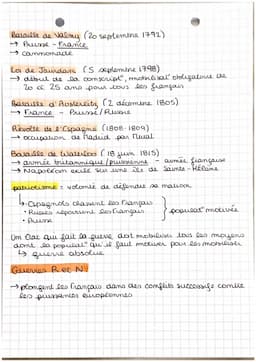 Bataille de Valmy (20 septembre 1792)
→ Prusse - France
→ cannonade
Loi de Jourdan (5 septembre 1798)
→ début de la conscript°, mobilisat° obligatoire de
20 à 25 ans pour tous les français
Bataille d'Austerlitz (2 décembre 1805)
→ France - Prusse/Russie
Révolte de l'Espagne (1808-1809)
→ occupation de Madrid par Murat
Bataille de Waterloo (18 juin 1815)
→ armée britannique/prussienne - armée française
→ Napoléon exilé sur une île de Sainte-Hélène
patriotisme = volonté de défendre sa nation
↳ • Espagnols chassent les français
• Russes repoussent les français
• Prusse
populat° motivée
Un État qui fait la guerre doit mobiliser tous les moyens
dont la populat° qu'il faut motiver pour les mobiliser
↳ guerre absolue
Guerres R et N :
→ plongent les français dans des conflits successifs contre
les puissances européennes